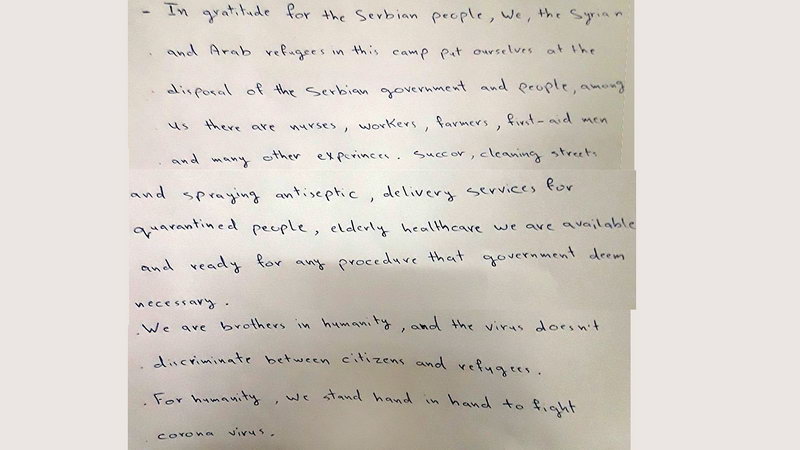 - In gratitude for the Serbian people, We, the Syrian
and Arab refugees in this camp put ourselves at the
disposal of the Serbian government and people, among
us there are nurses, workers, farmers, first-aid men
and many other experinces. Succor, cleaning streets
and spraying antiseptic, delivery services for
quarantined people, elderly healthcare we are available
and ready for any procedure that government deem
necessary.
. We are brothers in humanity, and the virus doesn't
. discriminate between citizens and refugees.
. For humanity, we stand hand in hand to fight
. corona virus.